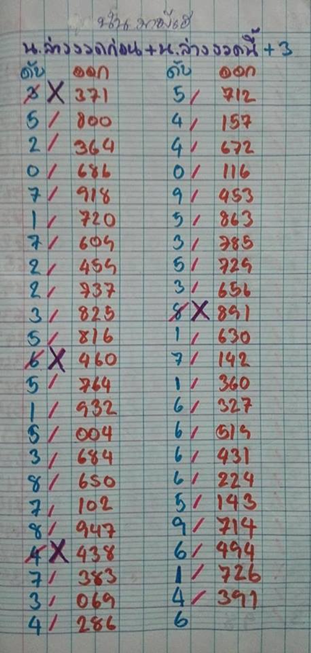 น.ล่างงวดก่อน+น.ล่างงวดนี้+3
ดับ ออก ดับ ออก
8/ X 371 5/ 712
5/ 800 4/ 157
2/ 364 4/ 672
0/ 686 0/ 116
7/ 918 9/ 453
1/ 720 5/ 863
7/ 609 3/ 785
2/ 459 5/ 729
2/ 737 3/ 656
3/ 825 8/ X 891
5/ 816 1/ 630
6/ X 460 7/ 142
5/ 764 1/ 360
1/ 932 6/ 327
5/ 004 6/ 519
3/ 684 6/ 431
8/ 650 6/ 224
7/ 102 5/ 143
8/ 947 9/ 714
4/ X 438 6/ 494
7/ 383 1/ 726
3/ 069 4/ 391
4/ 286 6